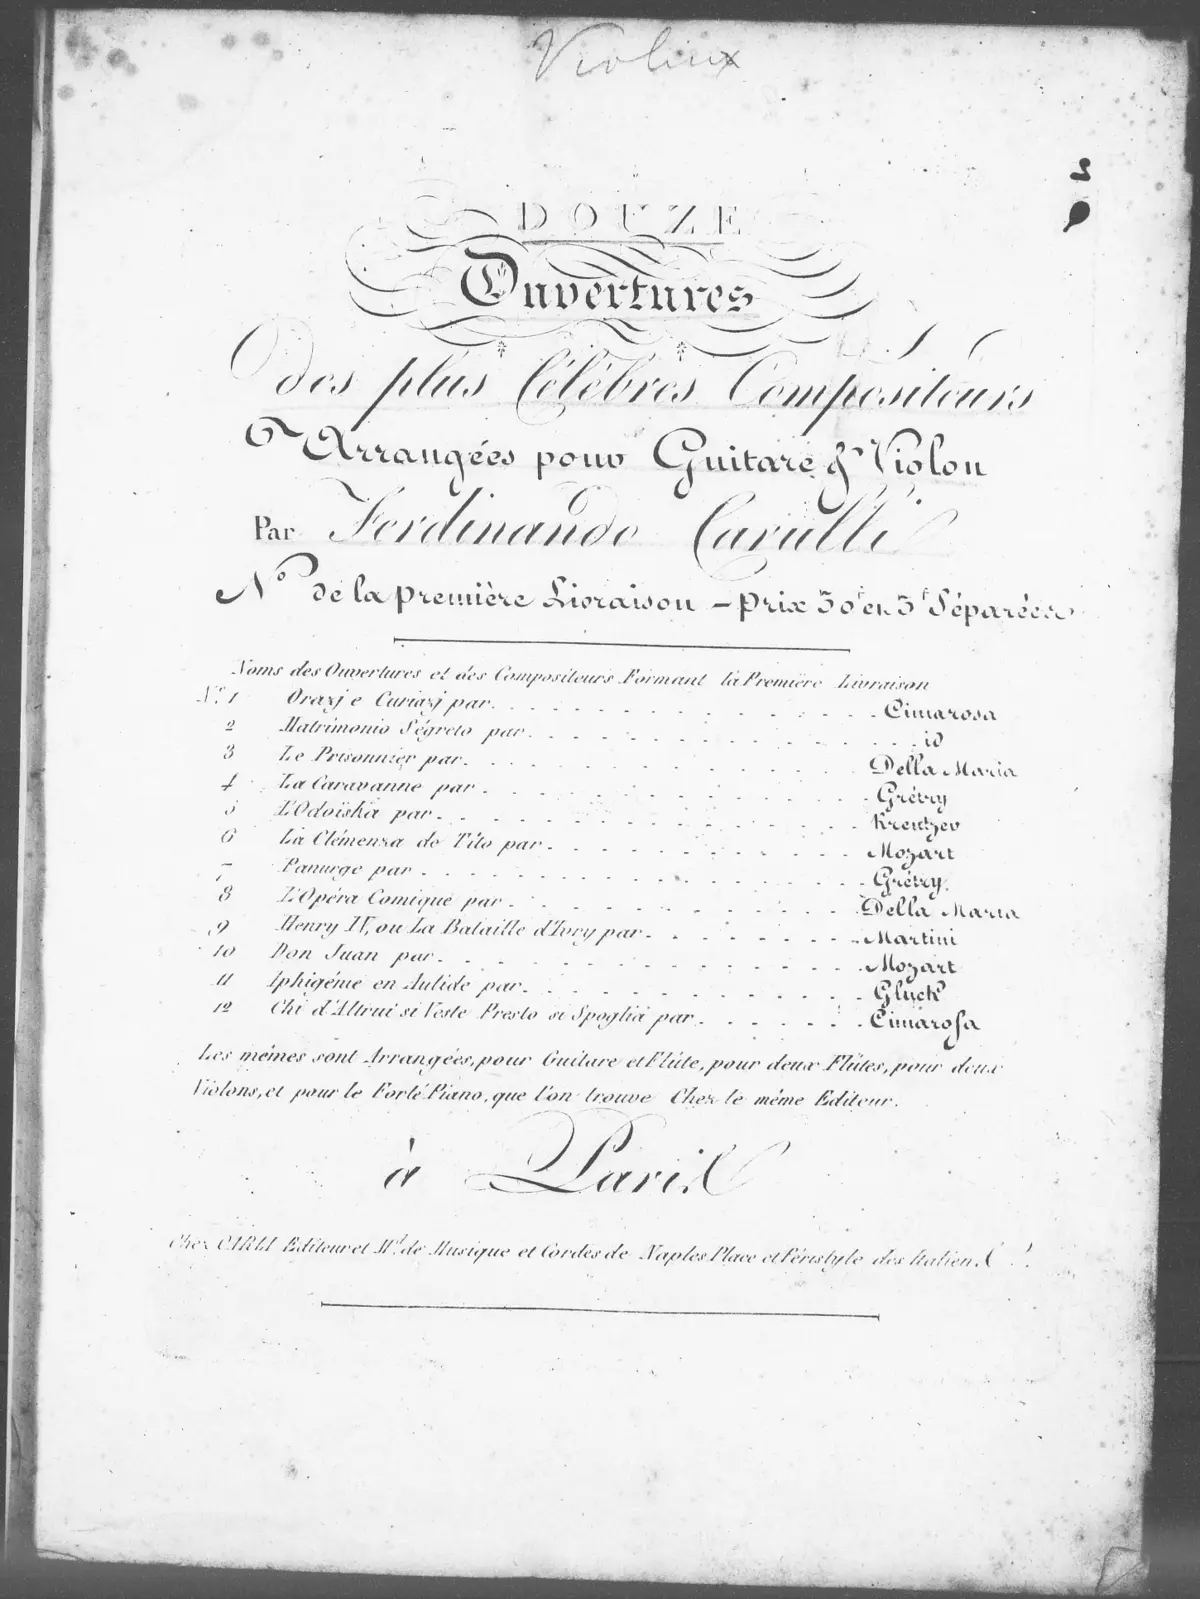 Violinx
DOUZE
Ouvertures
des plus Célèbres Compositeurs
Arrangées pour Guitare & Violon
Par Ferdinando Carulli
No de la première Livraison – prix 30f en 3f Séparées
Noms des Ouvertures et des Compositeurs Formant la Première Livraison
No. 1 Orazj e Curiazj par Cimarosa
2 Matrimonio Ségreto par id
3 Le Prisonnier par Della Maria
4 La Caravanne par Grétry
5 L'Odoïska par Kreutzer
6 La Clémenza de Tito par Mozart
7 Panurge par Grétry
8 L'Opéra Comique par Della Maria
9 Henry IV, ou La Bataille d'Ivry par Martini
10 Don Juan par Mozart
11 Iphigénie en Aulide par Gluck
12 Chi d'Altrui si Veste Presto si Spoglia par Cimarosa
Les mêmes sont Arrangées, pour Guitare et Flûte, pour deux Flûtes, pour deux
Violons, et pour le Forté Piano, que l'on trouve Chez le même Editeur.
à Paris
Chez CARLI Editeur et Md. de Musique et Cordes de Naples Place et Péristyle des Italiens